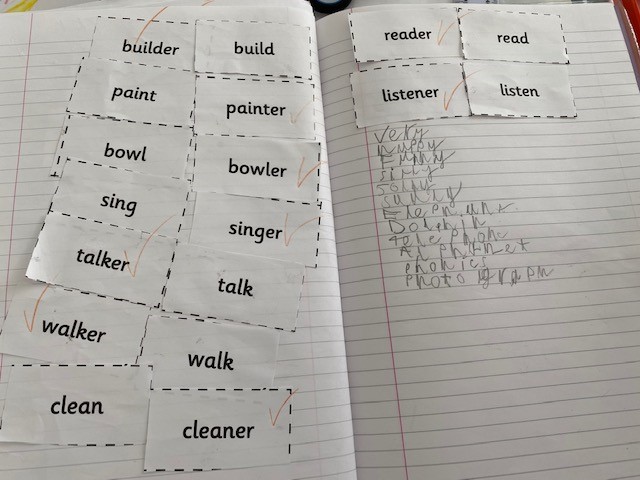 builder build
paint painter
bowl bowler
sing singer
talker talk
walker walk
clean cleaner
reader read
listener listen
very
Funny
silly
sorry
sunny
Dolphin
phonics
Photo graph